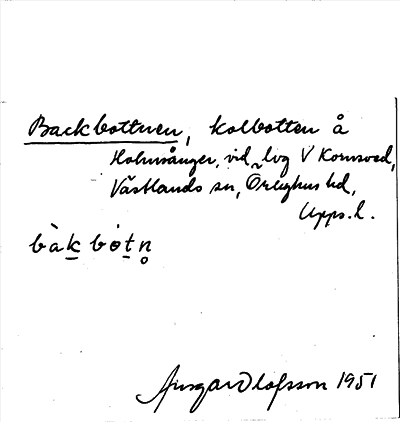 Backbottnen, kolbotten å
Holmsånger, vid lvg V Komsved,
Västlands sn, Örbyhus hd,
Upps. l.
bàk bòtn̥
Ansgar Olofsson 1951